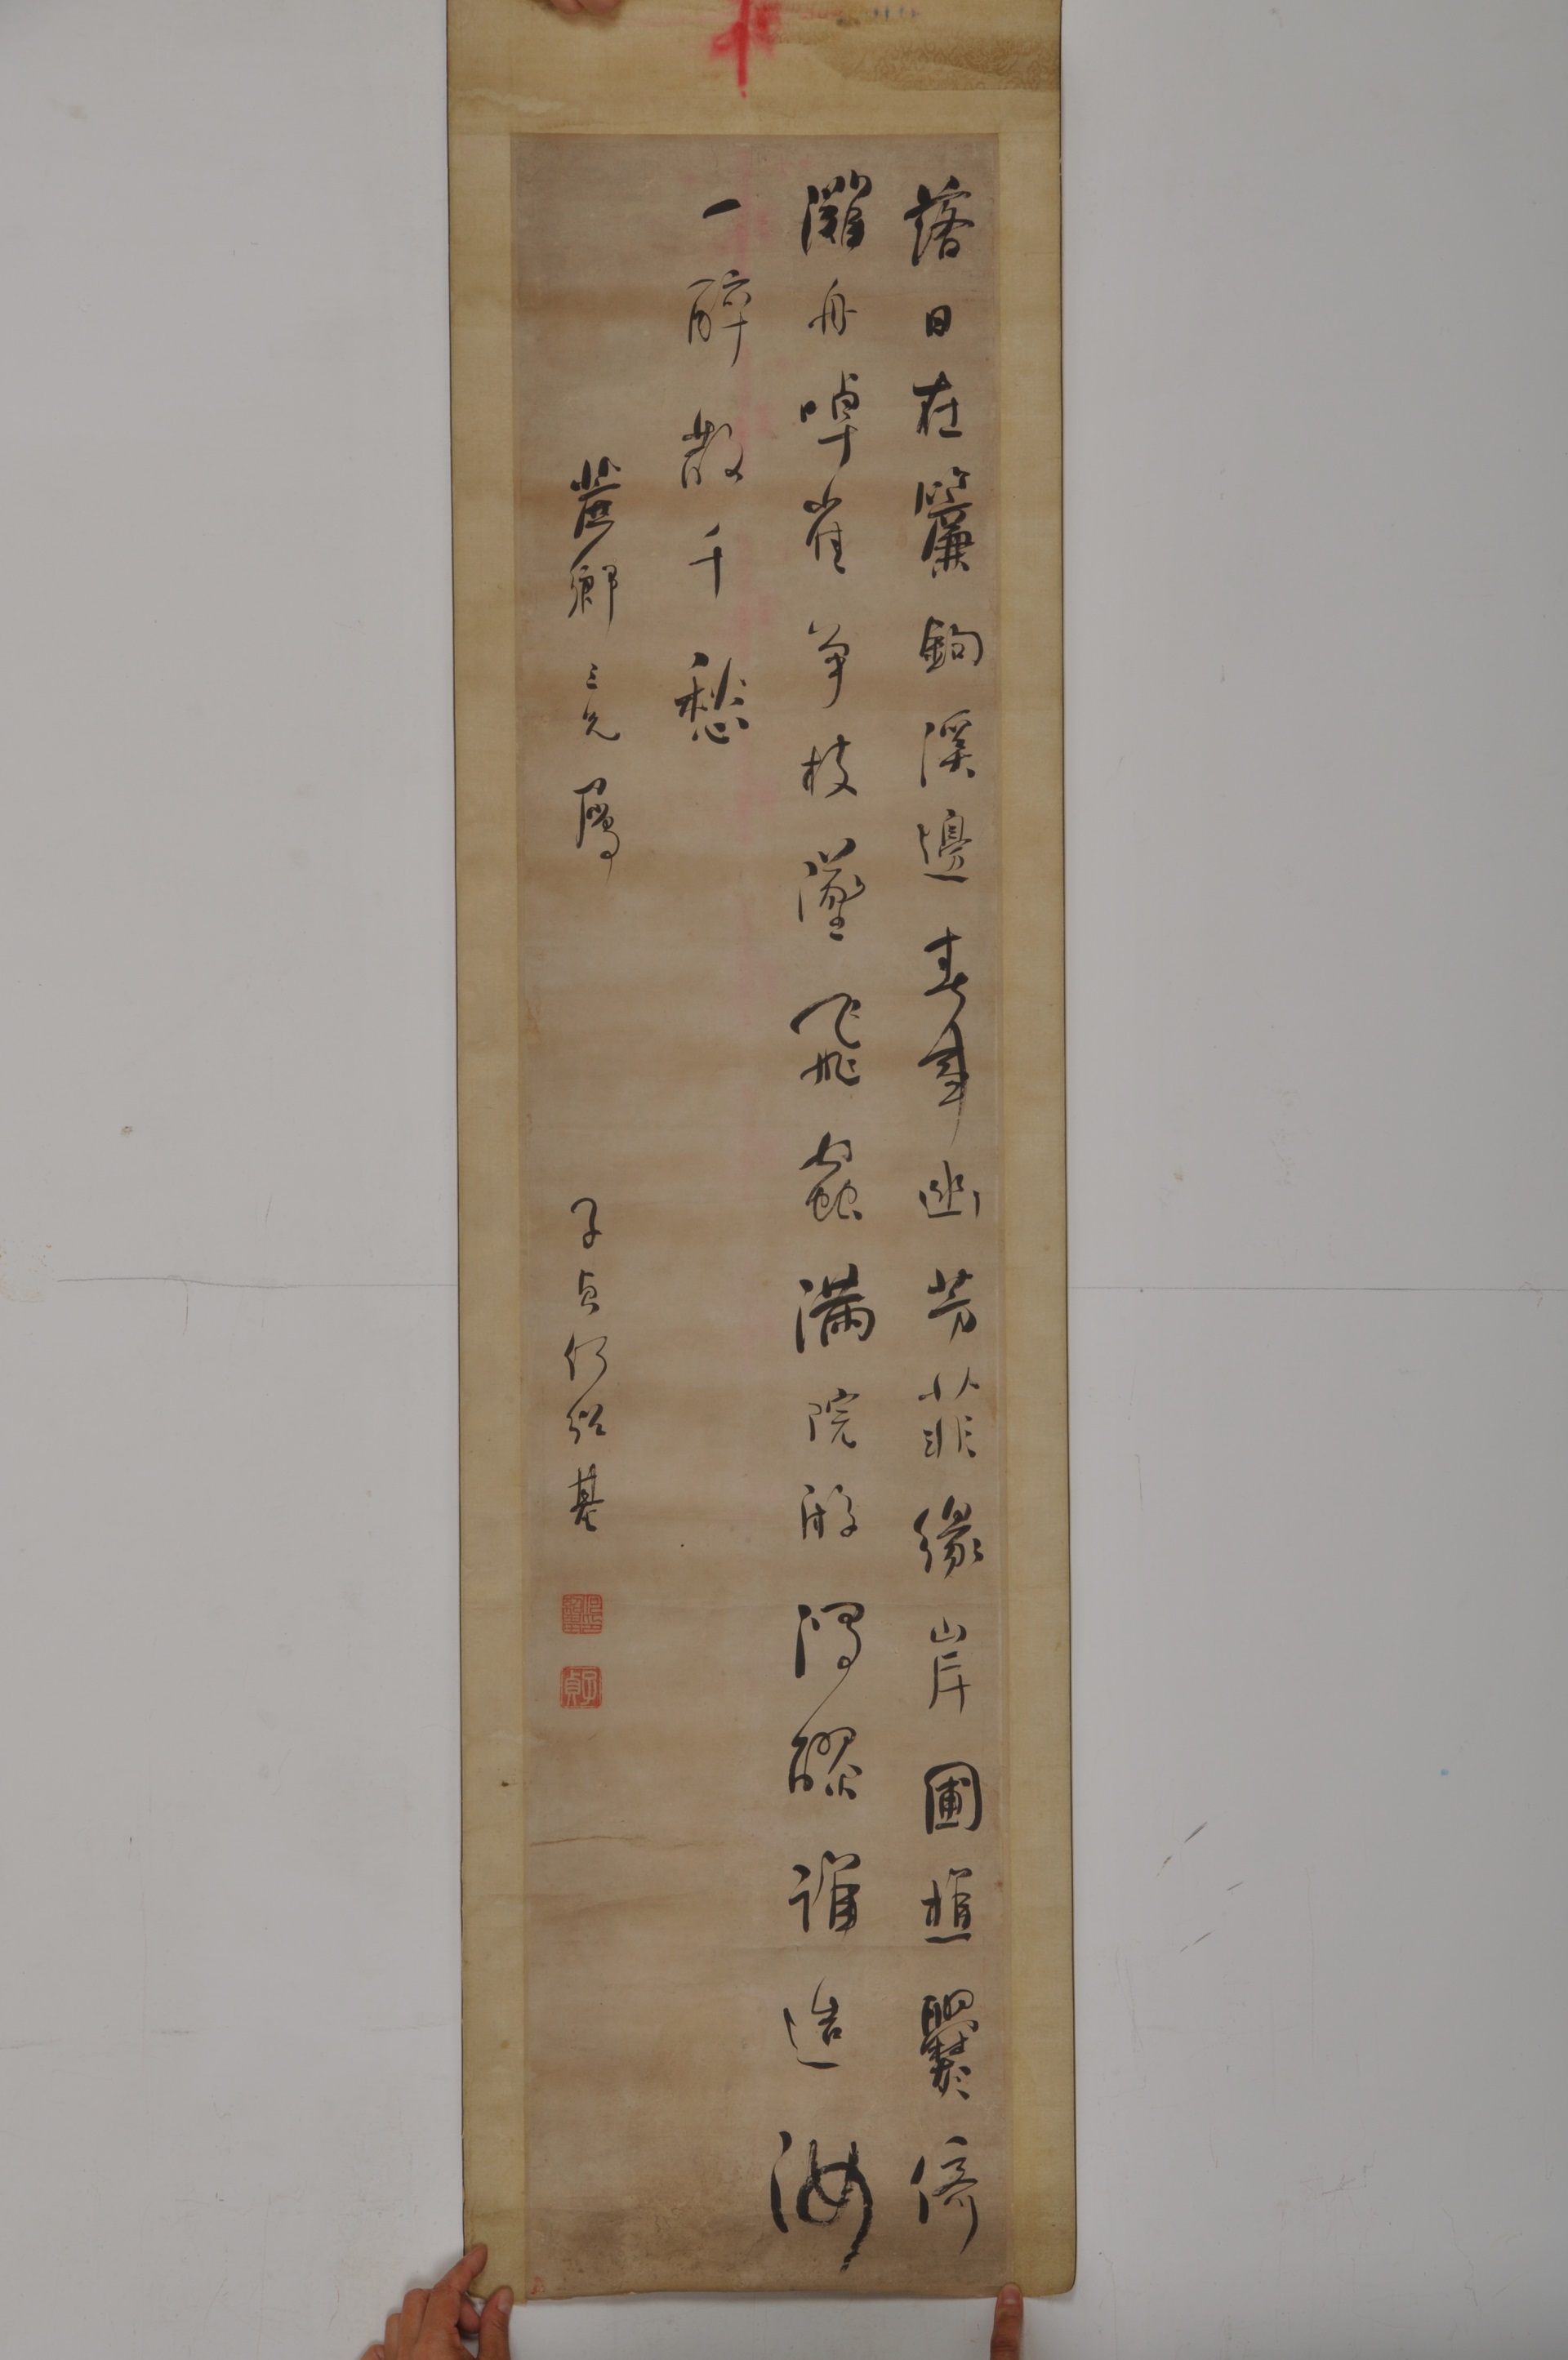 落日在簾鉤溪邊春事幽芳菲緣岸圃樵爨倚
灘舟啅雀爭枝墜飛蟲滿院游濁醪誰造汝
一醉散千愁
鹿卿三兄屬
子貞何紹基
子貞